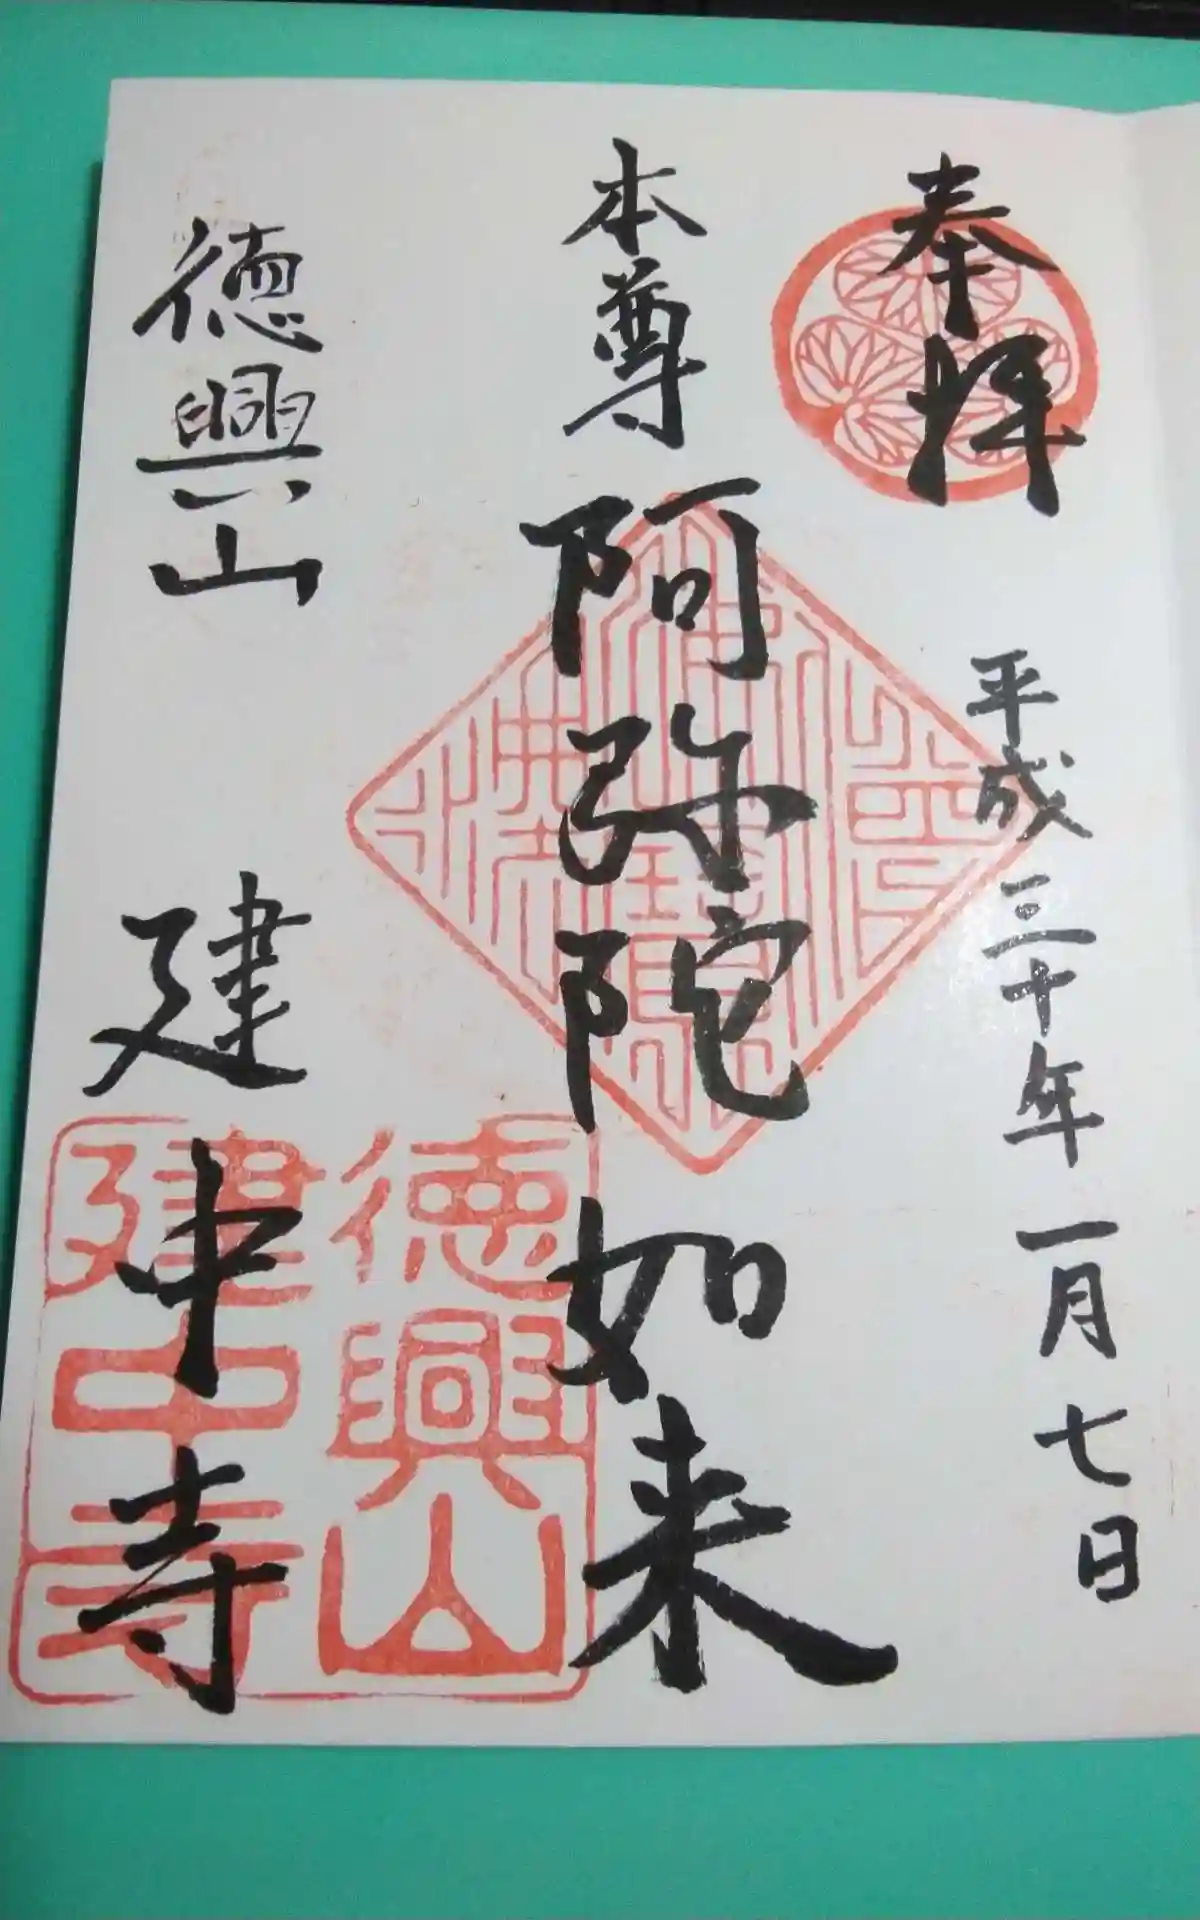 奉拝
平成三十年一月七日
本尊阿弥陀如来
徳興山
建中寺
徳興山
建中寺